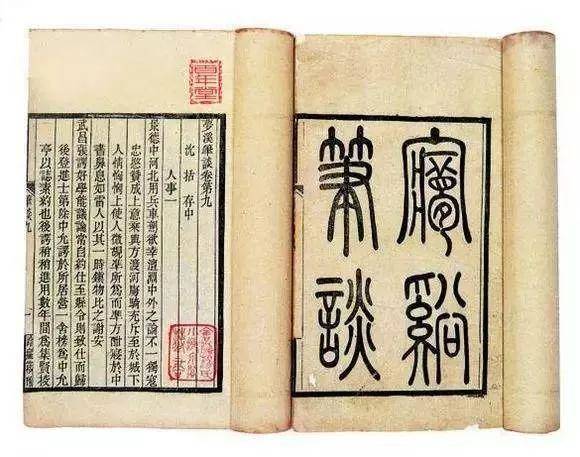 㝱谿
筆談
夢溪筆談卷第九
沈括存中
人事一
景德中河北用兵車駕欲幸澶淵中外之論不一獨寇
忠愍贊成上意乘輿方渡河虜騎充斥至於城下
人情恟恟上使人微覘準所爲而準方酣寢於中
書鼻息如雷人以其一時鎮物比之謝安
武昌張諤好學能議論常自約仕至縣令則致仕而歸
後登進士第除中允諤於所居營一舍榜爲中允
亭以誌素約也後諤稍稍進用數年間爲集賢校
筆談九
一
百年堂